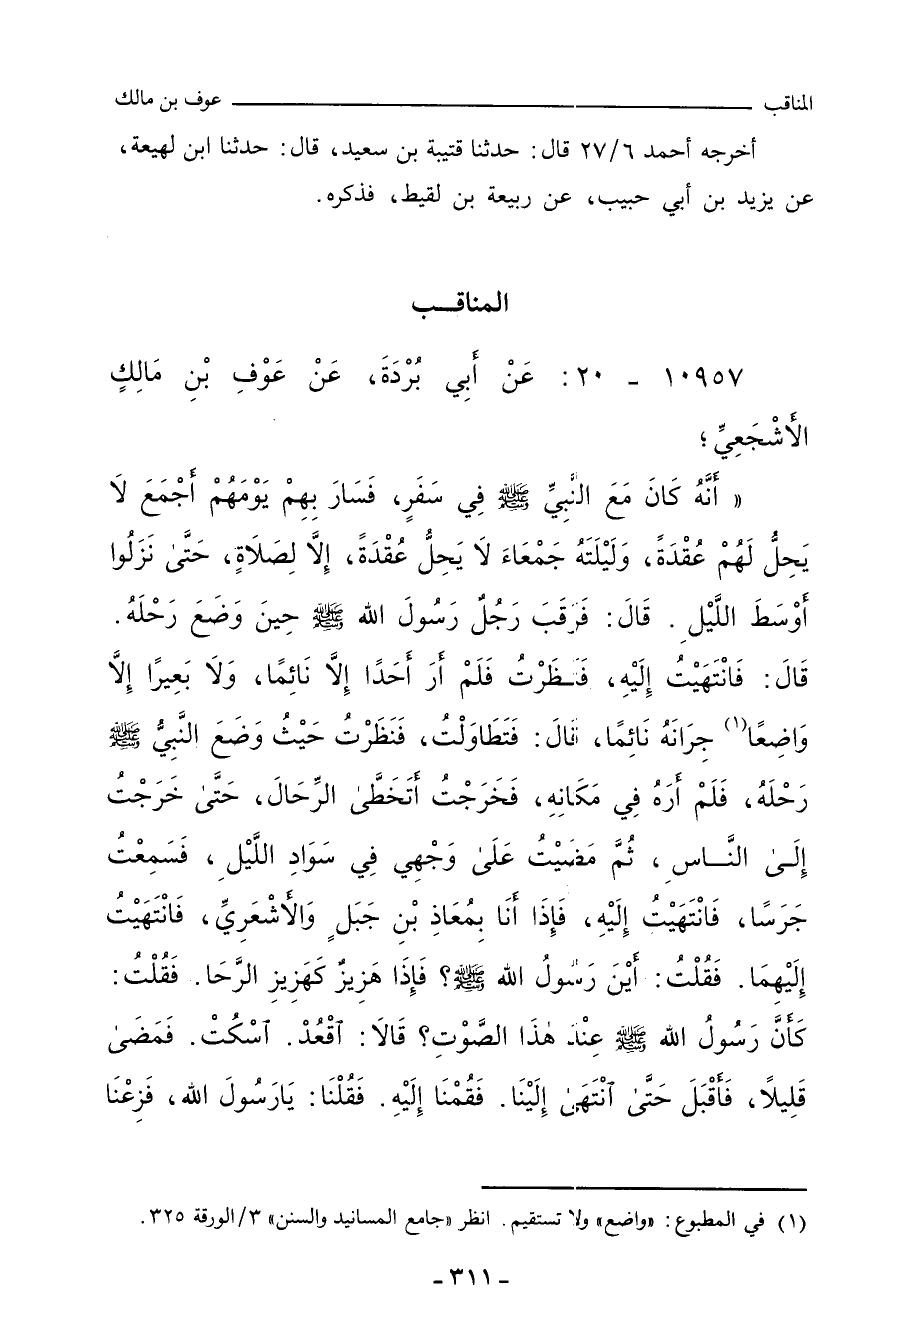 المناقب ــــــــــ عوف بن مالك
أخرجه أحمد ٢٧/٦ قال: حدثنا قتيبة بن سعيد، قال: حدثنا ابن لهيعة،
عن يزيد بن أبي حبيب، عن ربيعة بن لقيط، فذكره.
المناقـــب
١٠٩٥٧ - ٢٠: عَنْ أَبِي بُرْدَةَ، عَنْ عَوْفِ بْنِ مَالِكٍ
الأَشْجَعِيِّ؛
« أَنَّهُ كَانَ مَعَ النَّبِيِّ ﷺ فِي سَفَرٍ، فَسَارَ بِهِمْ يَوْمَهُمْ أَجْمَعَ لَا
يَحِلُّ لَهُمْ عُقْدَةً، وَلَيْلَتَهُ جَمْعَاءَ لَا يَحِلُّ عُقْدَةً، إِلَّا لِصَلَاةٍ، حَتَّىٰ نَزَلُوا
أَوْسَطَ اللَّيْلِ. قَالَ: فَرَقَبَ رَجُلٌ رَسُولَ الله ﷺ حِينَ وَضَعَ رَحْلَهُ.
قَالَ: فَانْتَهَيْتُ إِلَيْهِ، فَنَظَرْتُ فَلَمْ أَرَ أَحَدًا إِلَّا نَائِمًا، وَلَا بَعِيرًا إِلَّا
وَاضِعًا(١) جِرَانَهُ نَائِمًا، قَالَ: فَتَطَاوَلْتُ، فَنَظَرْتُ حَيْثُ وَضَعَ النَّبِيُّ ﷺ
رَحْلَهُ، فَلَمْ أَرَهُ فِي مَكَانِهِ، فَخَرَجْتُ أَتَخَطَّىٰ الرِّحَالَ، حَتَّىٰ خَرَجْتُ
إِلَىٰ النَّــاسِ، ثُمَّ مَضَيْتُ عَلَىٰ وَجْهِي فِي سَوَادِ اللَّيْلِ، فَسَمِعْتُ
جَرَسًا، فَانْتَهَيْتُ إِلَيْهِ، فَإِذَا أَنَا بِمُعَاذِ بْنِ جَبَلٍ وَالأَشْعَرِيِّ، فَانْتَهَيْتُ
إِلَيْهِمَا. فَقُلْتُ: أَيْنَ رَسُولُ الله ﷺ؟ فَإِذَا هَزِيزٌ كَهَزِيزِ الرَّحَا. فَقُلْتُ:
كَأَنَّ رَسُولُ الله ﷺ عِنْدَ هٰذَا الصَّوْتِ؟ قَالَا: ٱقْعُدْ. ٱسْكُتْ. فَمَضَىٰ
قَلِيلًا، فَأَقْبَلَ حَتَّىٰ ٱنْتَهَىٰ إِلَيْنَا. فَقُمْنَا إِلَيْهِ. فَقُلْنَا: يَارَسُولَ الله، فَزِعْنَا
(١) في المطبوع: «واضع» ولا تستقيم. انظر «جامع المسانيد والسنن» ٣/الورقة ٣٢٥.
- ٣١١ -